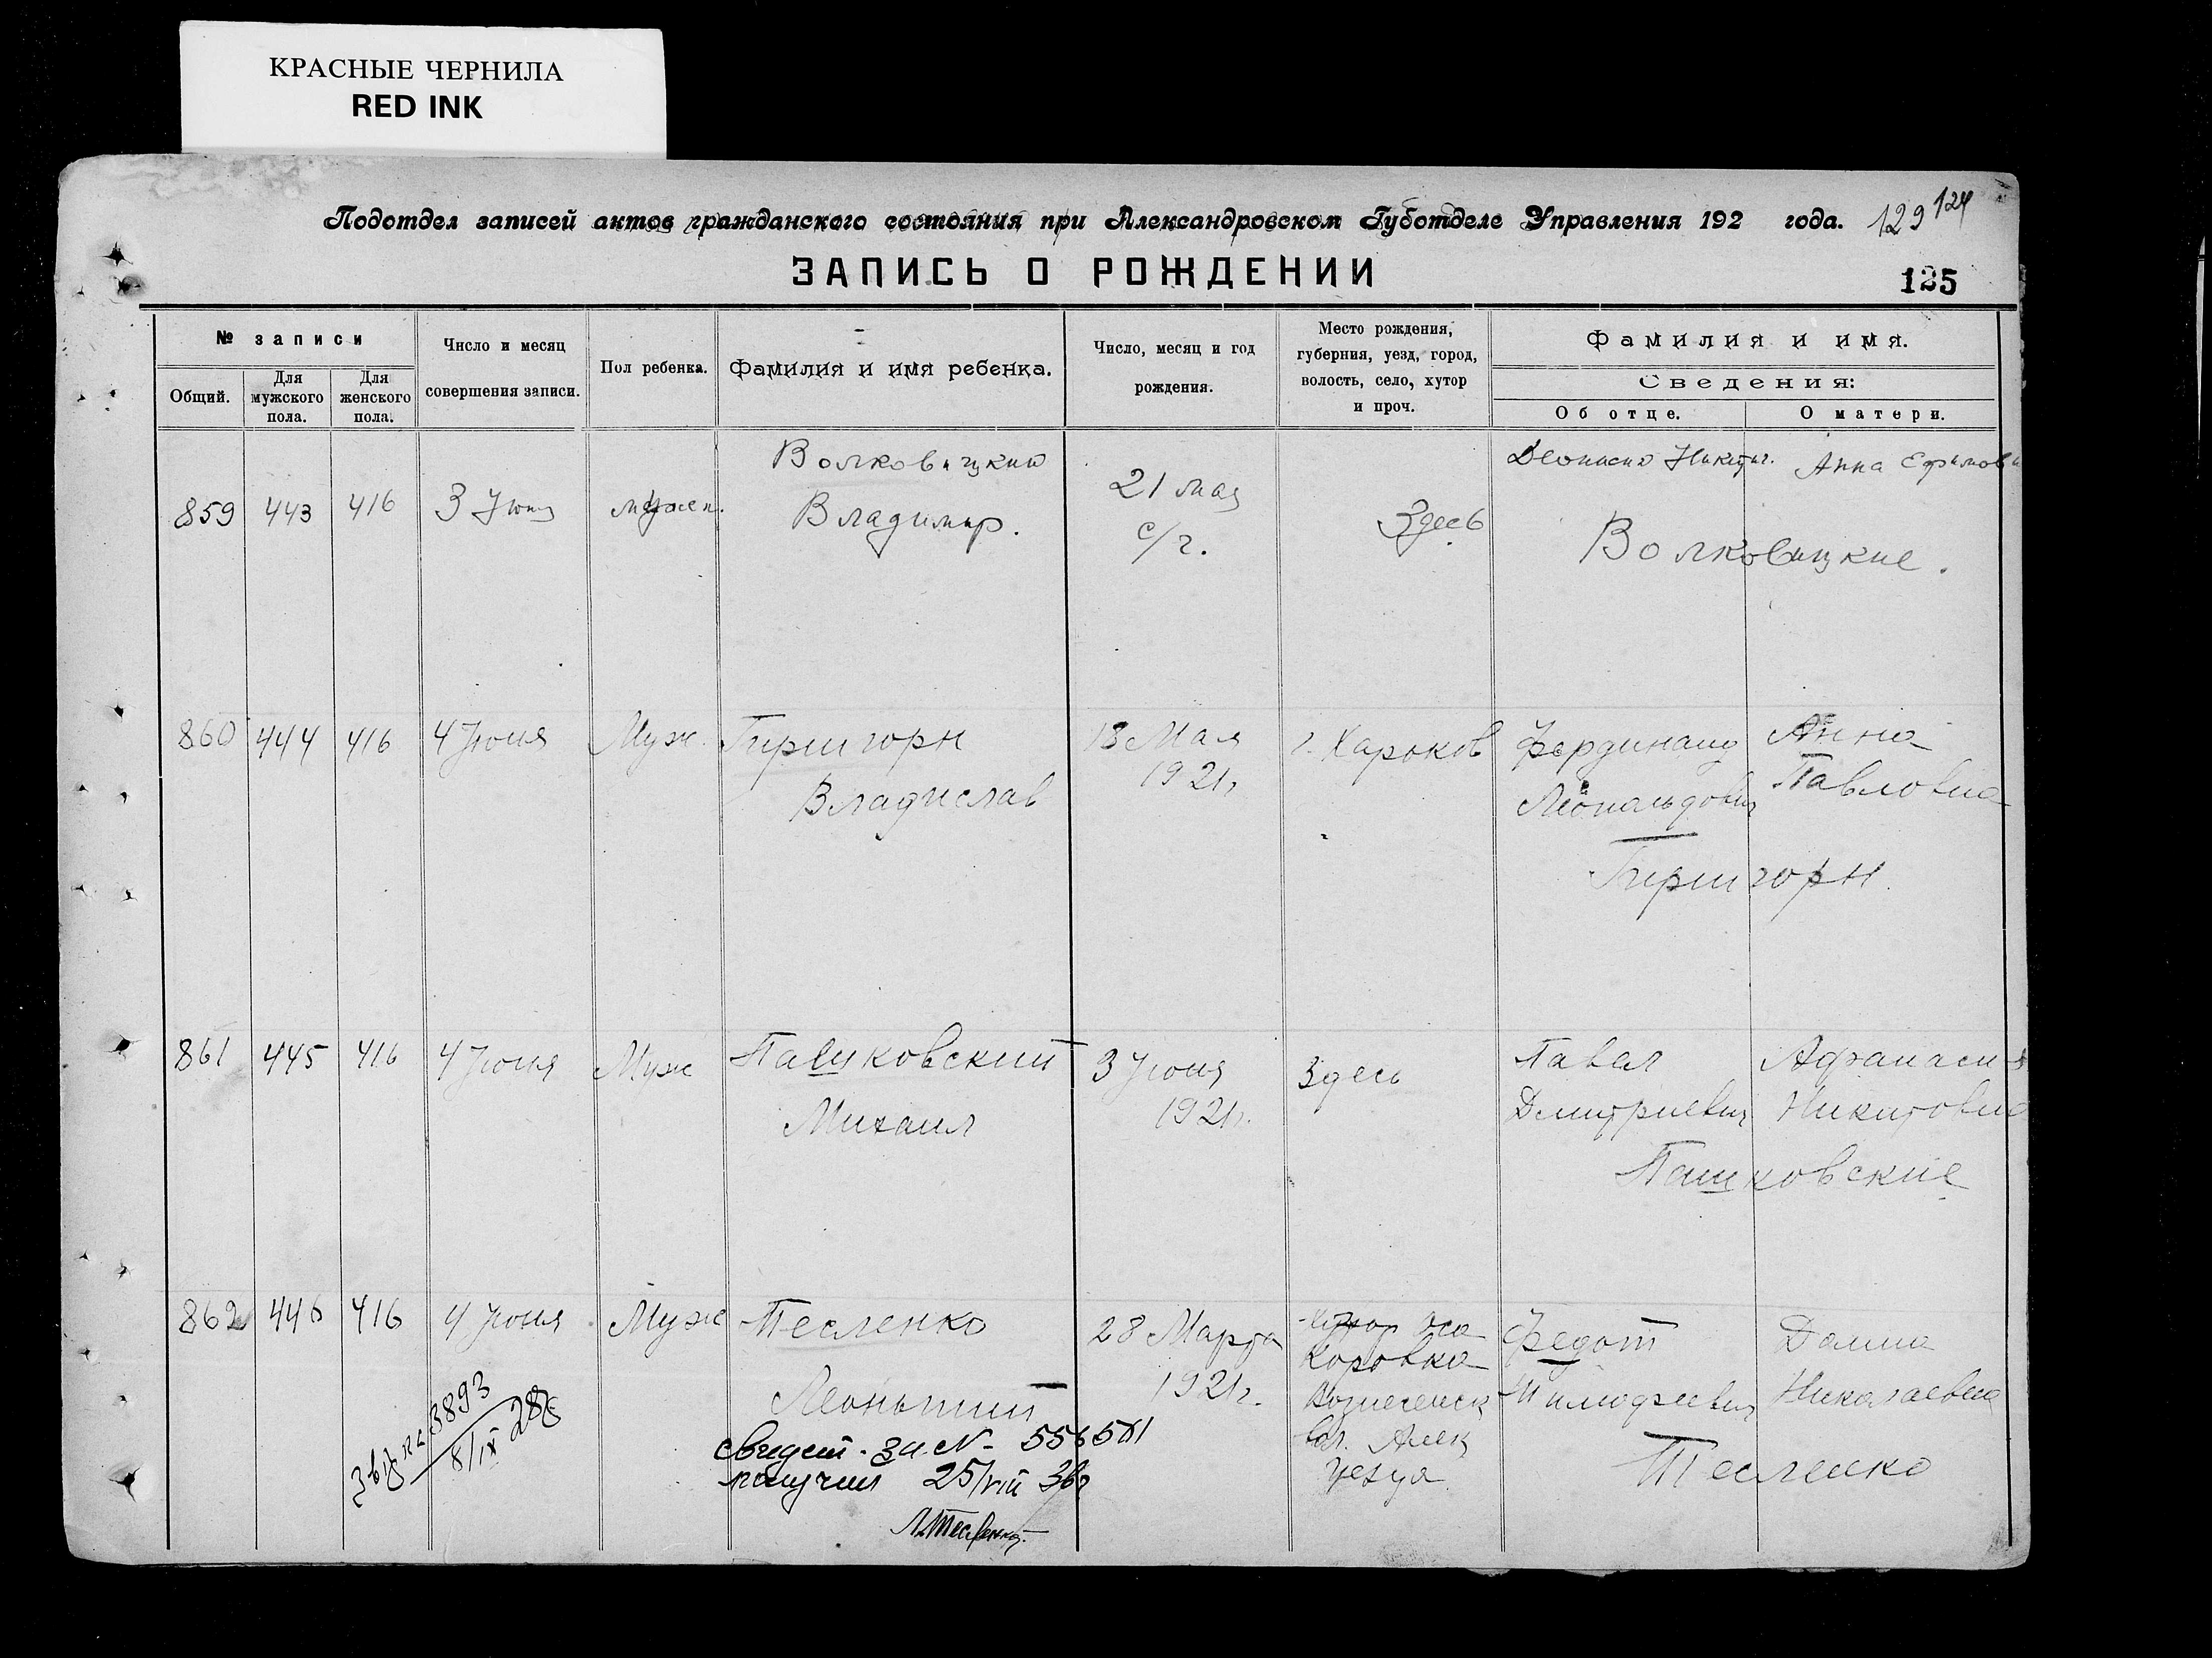 КРАСНЫЕ ЧЕРНИЛА
RED INK
Подотдел записей актов гражданского состояния при Александровском Губотделе Управления 192 года. 129 124
ЗАПИСЬ О РОЖДЕНИИ
125
№ записи
Общий.
Для мужского пола.
Для женского пола.
Число и месяц
совершения записи.
Пол ребенка.
Фамилия и имя ребенка.
Число, месяц и год
рождения.
Место рождения,
губерния, уезд, город,
волость, село, хутор
и проч.
Фамилия и имя.
Сведения:
Об отце.
О матери.
859 443 416 3 Июня
Волковицкий
Владимир.
21 мая
с/г.
Здесь
Никит. Анна Ефимовн
Волковицкие.
860 444 416 4 Июня Муж. Гиршгорн
Владислав
13 Мая
1921г.
г. Харьков
Фердинанд
Леопольдович
Анна
Павловна
Гиршгорн.
861 445 416 4 Июня Муж Пашковский
Михаил
3 Июня
1921г.
Здесь
Павел
Дмитриевич
Афанасия
Никитовна
Пашковские
862 446 416 4 Июня Муж Тесленко
Леонтий
свидет. за N- 556581
получил 25/VIII 36г
Л.Тесленко.
3893
8/IX 28
28 Марта
1921г.
Хутор
Коровка
Вознесенск
вол. Алек
уезда
Федот
Тимофеевич
Домна
Николаевна
Тесленко